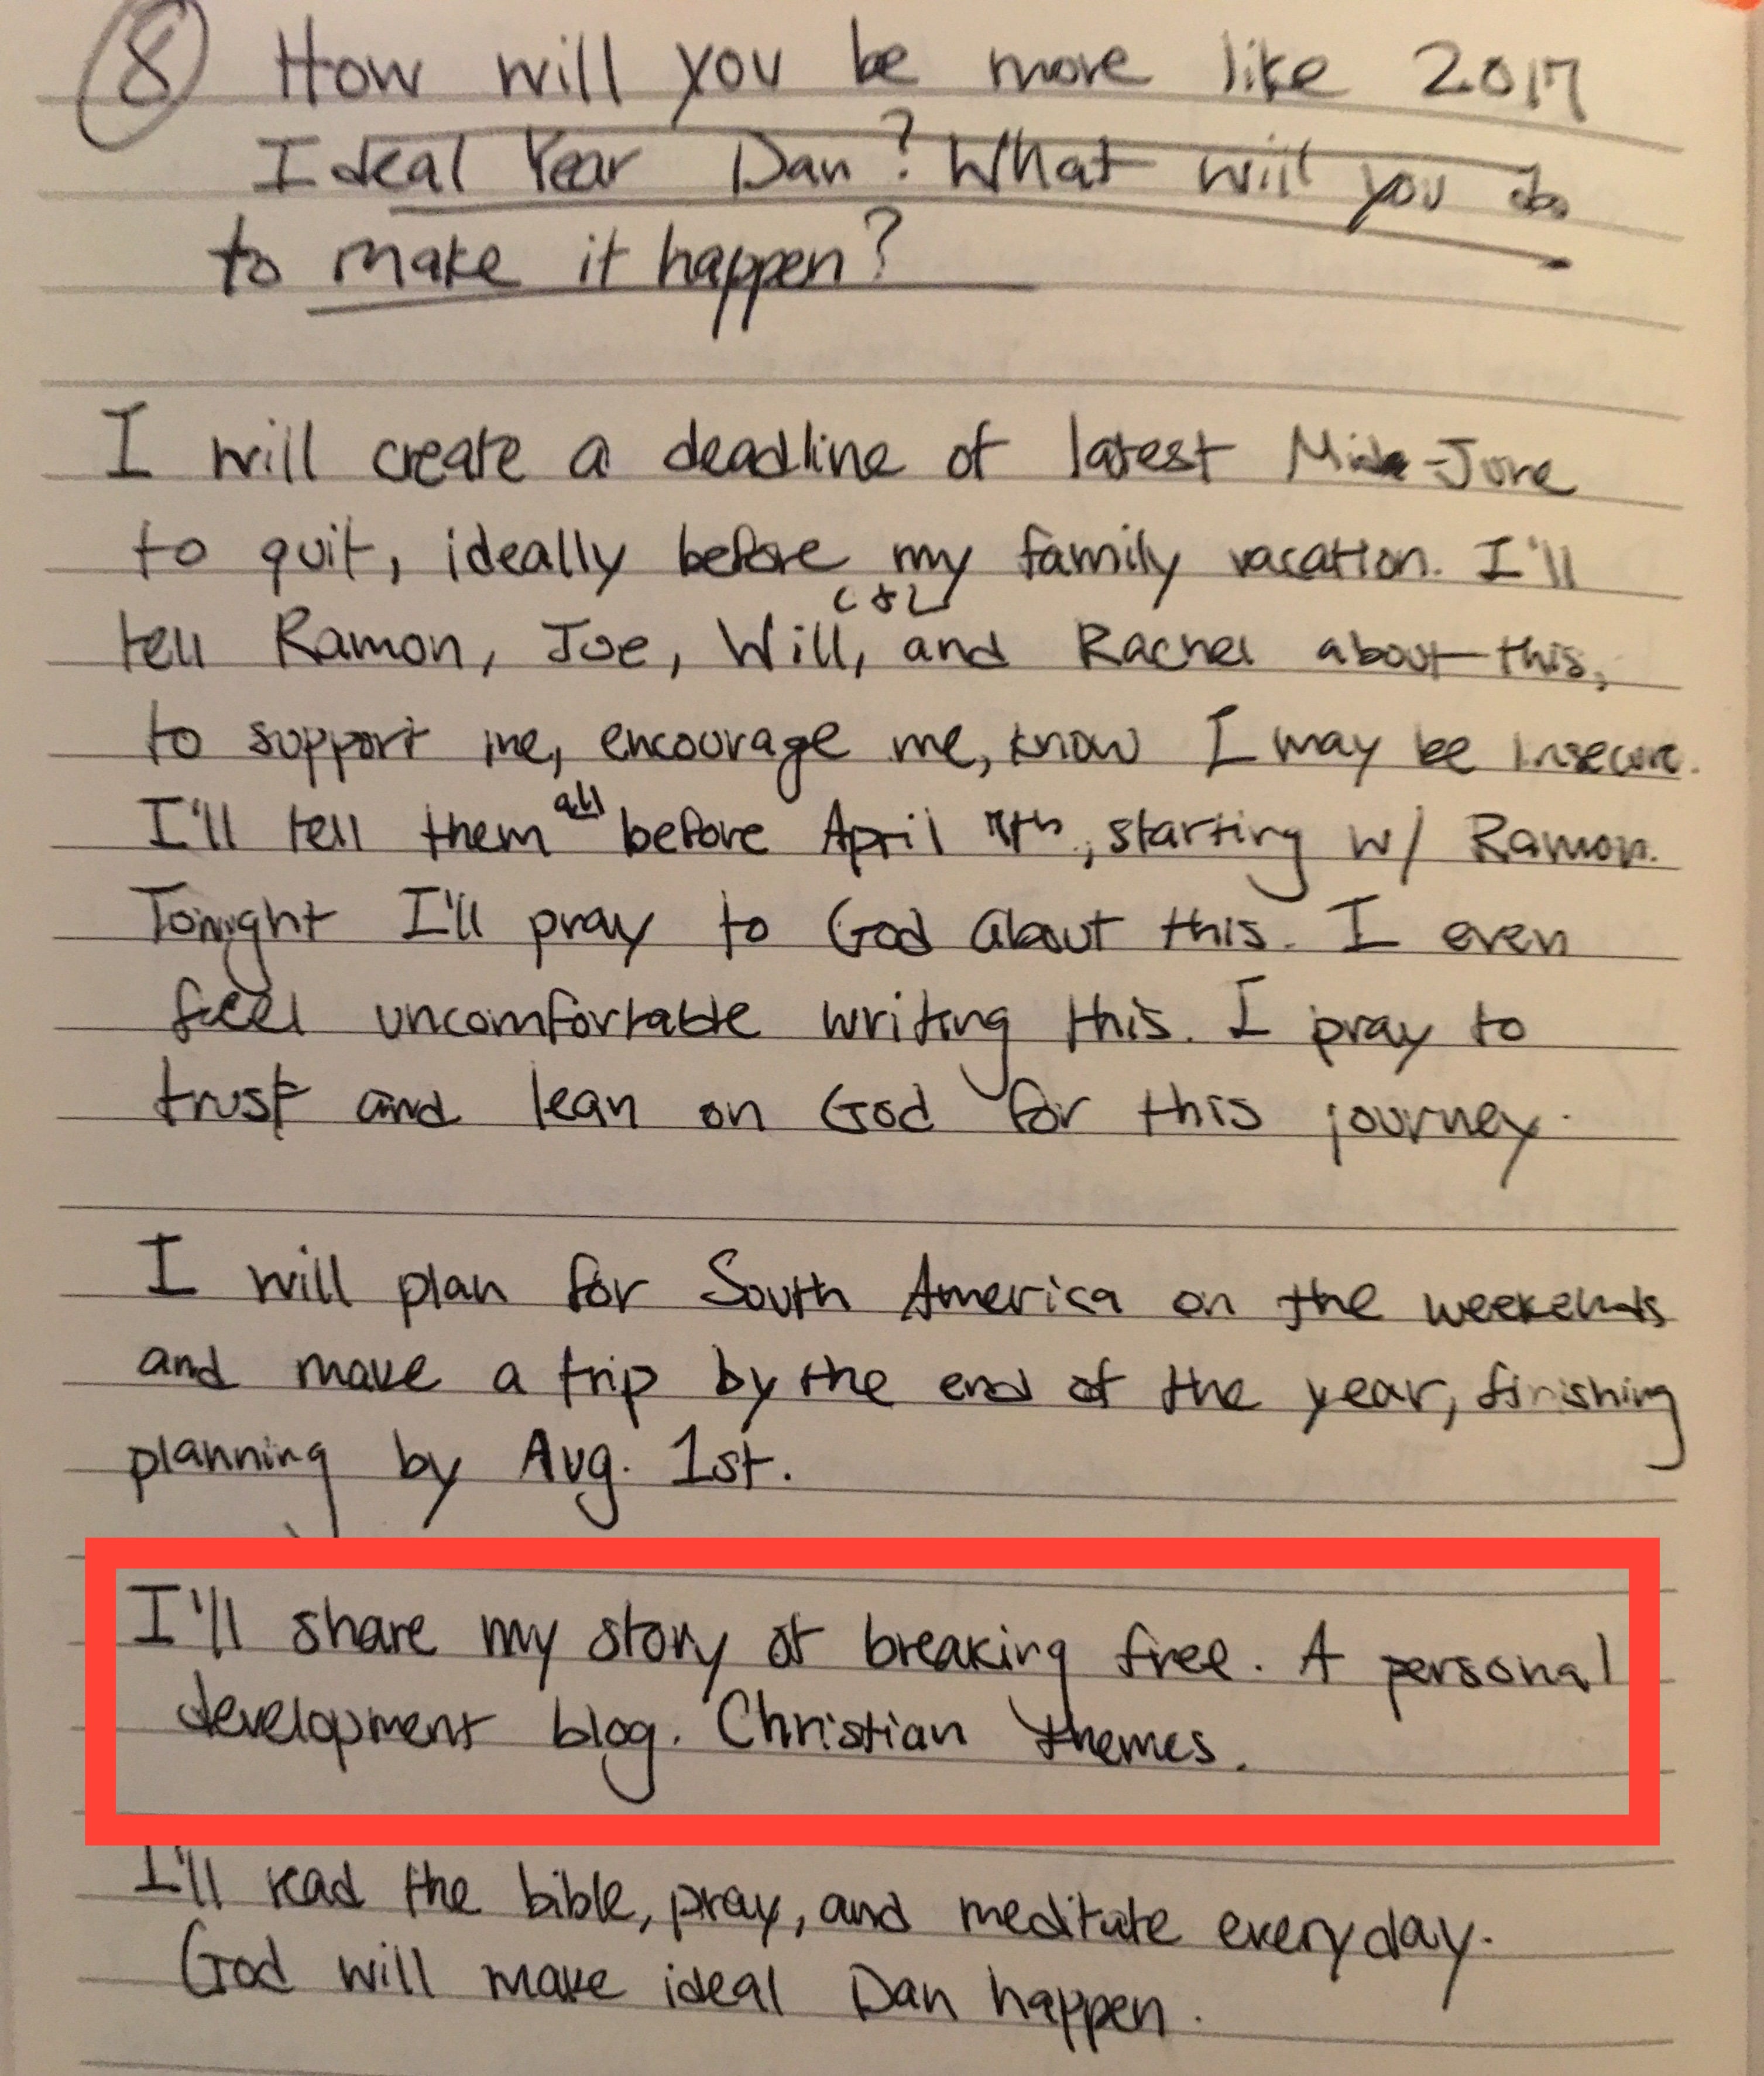 8 How will you be more like 2017
Ideal Year Dan? What will you do
to make it happen?
I will create a deadline of latest Mid-June
to quit, ideally before my family vacation. I'll
tell Ramon, Joe, Will, and Rachel about this,
to support me, encourage me, know I may be insecure.
I'll tell them all before April, starting w/ Ramon.
Tonight I'll pray to God about this. I even
feel uncomfortable writing this. I pray to
trust and lean on God for this journey.
I will plan for South America on the weekends
and make a trip by the end of the year, finishing
planning by Aug. 1st.
I'll share my story of breaking free. A personal
development blog. Christian themes.
I'll read the bible, pray, and meditate everyday.
God will make ideal Dan happen.